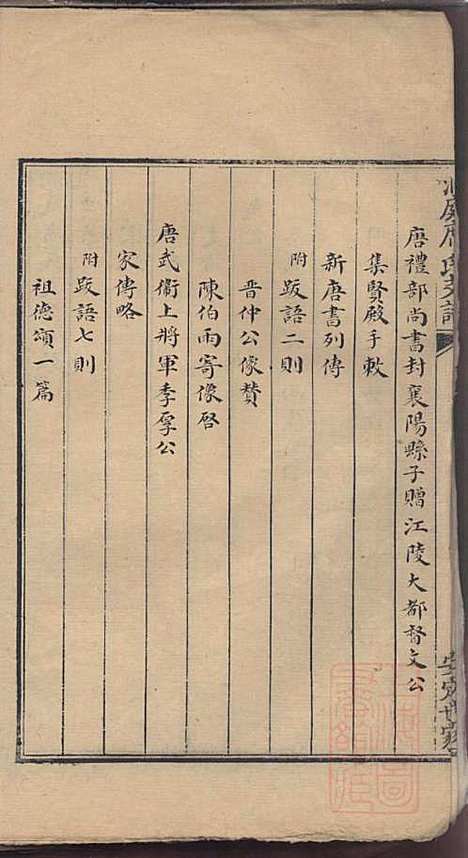 唐禮部尚書封襄陽縣子贈江陵大都督文公
集賢殿手敕
新唐書列傳
附跋語二則
晉仲公像贊
陳伯雨寄像啓
唐武衛上將軍季孚公
家傳略
附跋語七則
祖德頌一篇